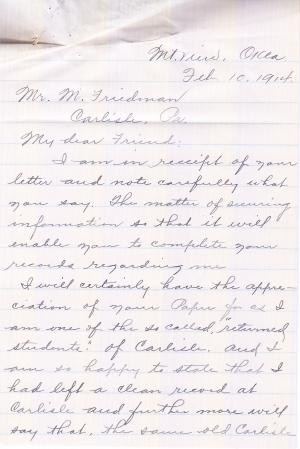 Mt. View, Okla.
Feb 10, 1914
Mr. M. Friedman
Carlisle, Pa.
My dear Friend:
I am in receipt of your
letter and note carefully what
you say. The matter of securing
information so that it will
enable you to complete your
records regarding me
I will certainly have the appre-
ciation of your Paper as I
am one of the so called, "returned
students" of Carlisle. And I
am so happy to state that I
had left a clean record at
Carlisle and further more will
say that, the same old Carlisle